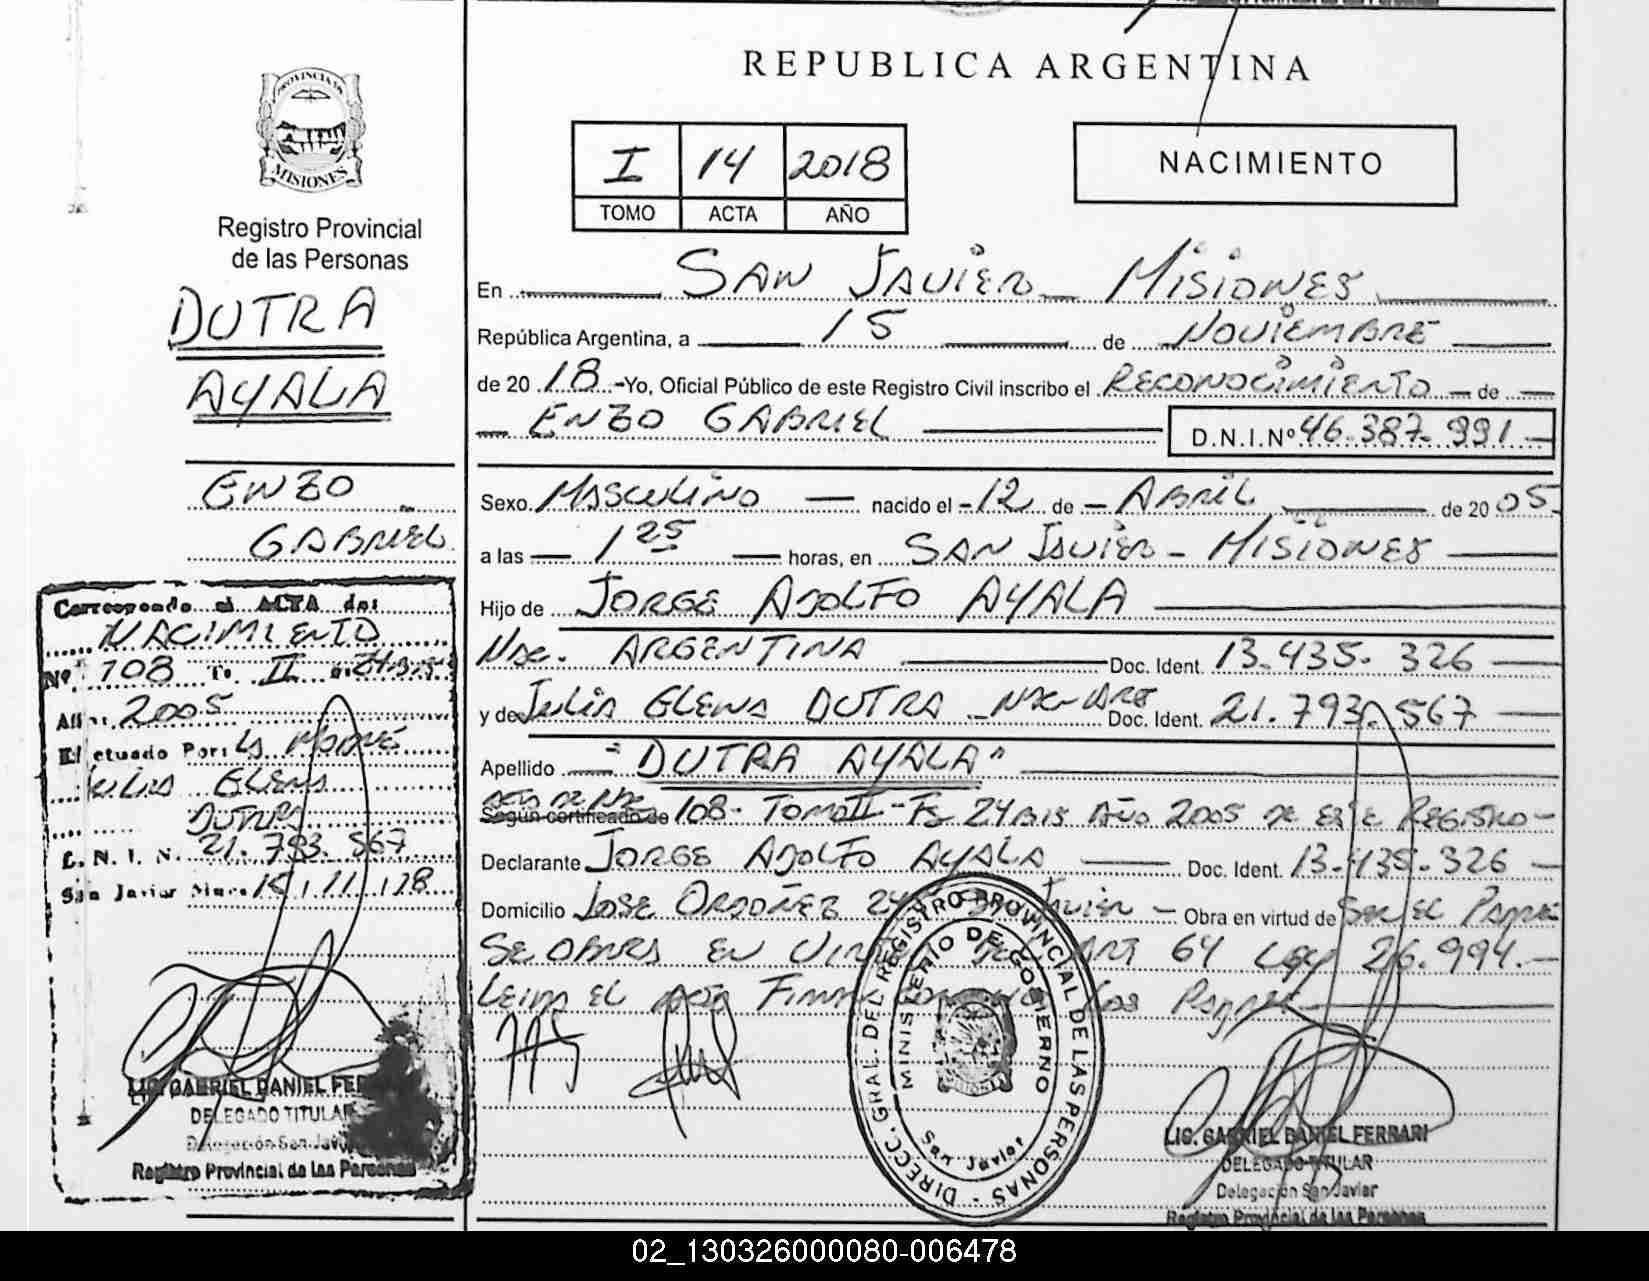 REPUBLICA ARGENTINA
PROVINCIA DE
MISIONES
Registro Provincial
de las Personas
DUTRA
AYALA
ENZO
GABRIEL
Corresponde al ACTA de:
NACIMIENTO
Nº 108 Tº II 24 BIS
Año 2005
Efectuado Por: LA MADRE
JULIA ELENA
DUTRA
D. N. I. N. 21.793.567
San Javier Mnes. 15/11/18
LIC. GABRIEL DANIEL
DELEGADO TITULAR
Delegación San Javier
Registro Provincial de las Personas
I 14 2018
TOMO ACTA AÑO
NACIMIENTO
En SAN JAVIER MISIONES
República Argentina, a 15 de NOVIEMBRE
de 20 18 -Yo, Oficial Público de este Registro Civil inscribo el RECONOCIMIENTO de
ENZO GABRIEL D.N.I.Nº 46.387.991
Sexo. MASCULINO nacido el 12 de ABRIL de 20 05
a las 1 25 horas, en SAN JAVIER - MISIONES
Hijo de JORGE ADOLFO AYALA
Nac. ARGENTINA Doc. Ident. 13.435.326
y de JULIA ELENA DUTRA Doc. Ident. 21.793.567
Apellido "DUTRA AYALA"
Según certificado de 108- TOMO II - Fs 24 BIS AÑO 2005 DE ESTE REGISTRO-
Declarante JORGE ADOLFO AYALA Doc. Ident. 13.435.326
Domicilio JOSE ORDOÑEZ JAVIER - Obra en virtud de SER EL PADRE
SE OBRA EN ART 64 LEY 26.994.-
LEIDA EL ACTA LOS PADRES
DIRECC. GRAL. DEL REGISTRO PROVINCIAL DE LAS PERSONAS
MINISTERIO DE GOBIERNO
San Javier
LIC. GABRIEL DANIEL FERRARI
DELEGADO TITULAR
Delegación San Javier
Registro Provincial de las Personas
02_130326000080-006478